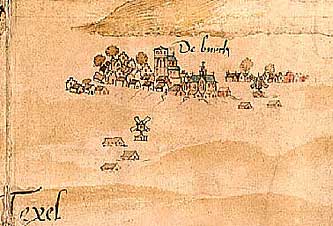 De burch
Texel